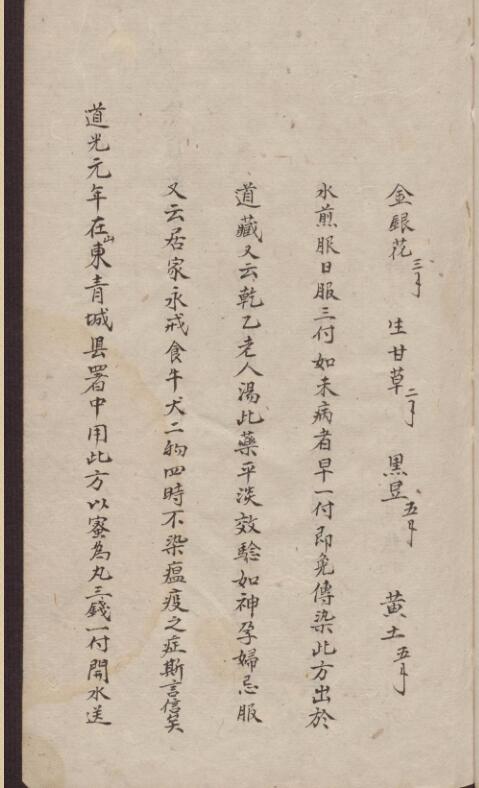 金銀花三錢 生甘草二錢 黑豆五錢 黄土五錢
水煎服日服三付如未病者早一付即免傳染此方出於
道藏又云乾乙老人湯此藥平淡效驗如神孕婦忌服
又云居家永戒食牛犬二物四時不染瘟疫之症斯言信矣
道光元年在山東青城县署中用此方以蜜為丸三錢一付開水送